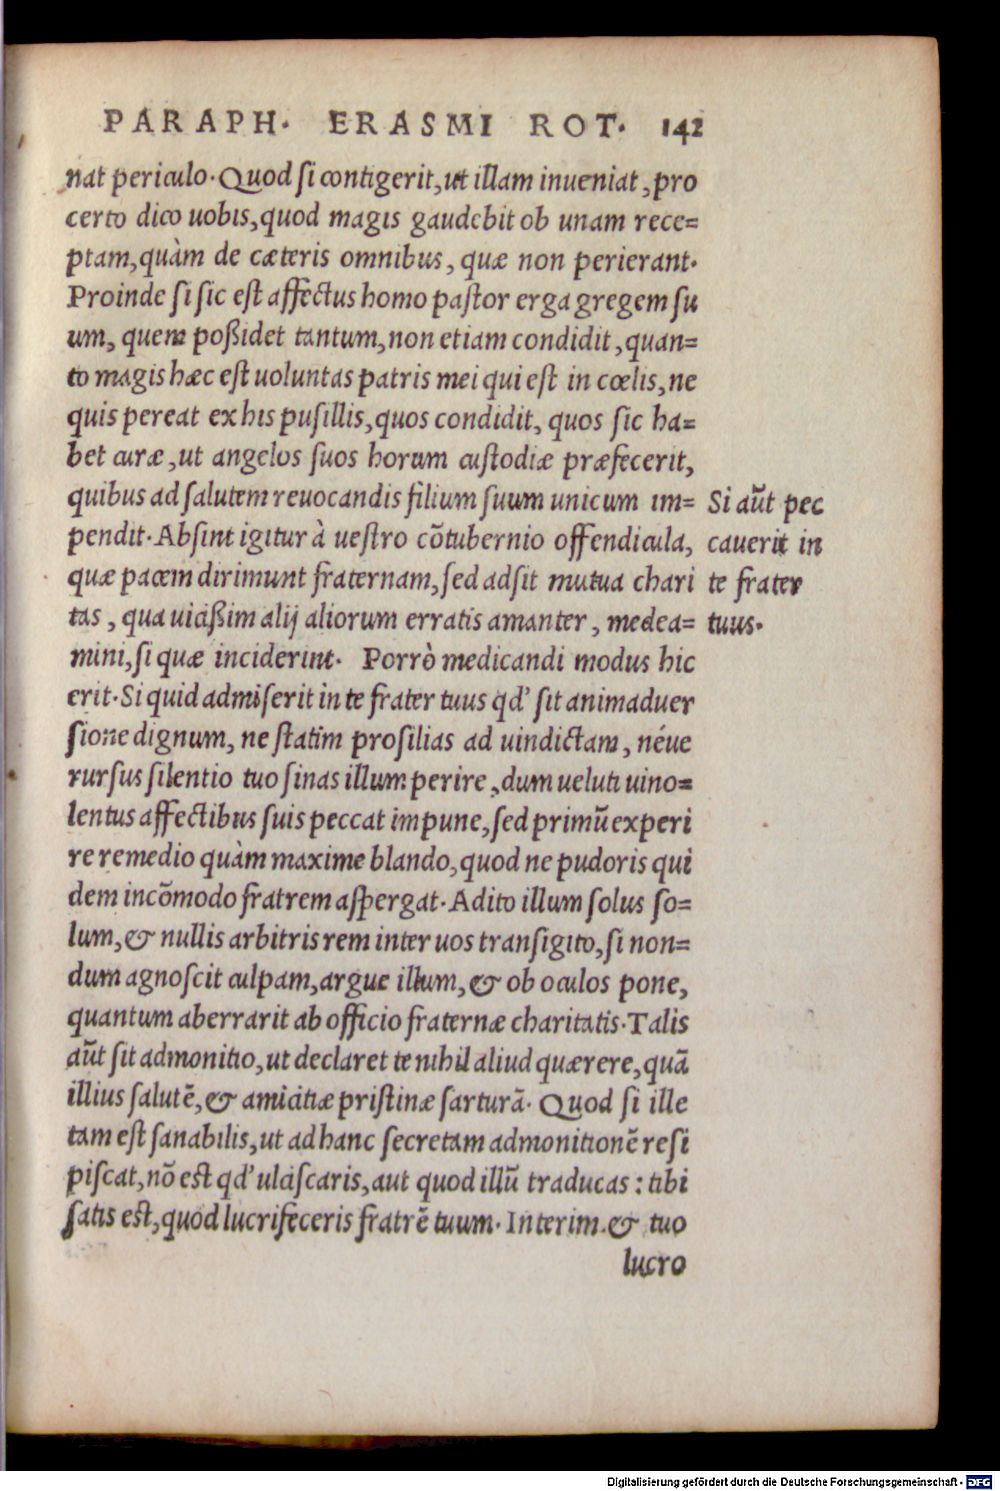 PARAPH. ERASMI ROT. 142
nat periculo. Quod si contigerit, ut illam inueniat, pro
certo dico uobis, quod magis gaudebit ob unam rece=
ptam, quàm de cæteris omnibus, quæ non perierant.
Proinde si sic est affectus homo pastor erga gregem su
um, quem poßidet tantum, non etiam condidit, quan=
to magis hæc est uoluntas patris mei qui est in cœlis, ne
quis pereat ex his pusillis, quos condidit, quos sic ha=
bet curæ, ut angelos suos horum custodiæ præfecerit,
quibus ad salutem reuocandis filium suum unicum im=
pendit. Absint igitur à uestro cōtubernio offendicula,
quæ pacem dirimunt fraternam, sed adsit mutua chari
tas, qua uicißim alij aliorum erratis amanter, medea=
mini, si quæ inciderint. Porrò medicandi modus hic
erit. Si quid admiserit in te frater tuus qd' sit animaduer
sione dignum, ne statim prosilias ad uindictam, néue
rursus silentio tuo sinas illum perire, dum ueluti uino=
lentus affectibus suis peccat impune, sed primū experi
re remedio quàm maxime blando, quod ne pudoris qui
dem incōmodo fratrem aspergat. Adito illum solus so=
lum, & nullis arbitris rem inter uos transigito, si non=
dum agnoscit culpam, argue illum, & ob oculos pone,
quantum aberrarit ab officio fraternæ charitatis. Talis
aūt sit admonitio, ut declaret te nihil aliud quærere, quā
illius salutē, & amicitiæ pristinæ sarturā. Quod si ille
tam est sanabilis, ut ad hanc secretam admonitionē resi
piscat, nō est qd' ulciscaris, aut quod illū traducas: tibi
satis est, quod lucrifeceris fratrē tuum. Interim & tuo
lucro
Si aūt pec
cauerit in
te frater
tuus.
Digitalisierung gefördert durch die Deutsche Forschungsgemeinschaft - DFG